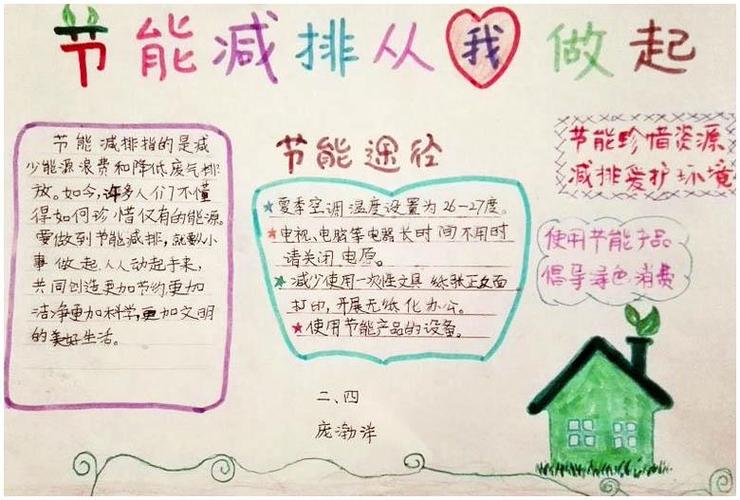 节能减排从我做起
节能减排指的是减
少能源浪费和降低废气排
放。如今,许多人们不懂
得如何珍惜仅有的能源。
要做到节能减排,就要从小
事做起,人人动起手来,
共同创造更加节约,更加
洁净更加科学,更加文明
的美好生活。
节能途径
★夏季空调温度设置为26-27度。
★电视、电脑等电器长时间不用时
请关闭电原。
★减少使用一次性文具 纸张正反面
打印,开展无纸化办公。
★使用节能产品的设备。
节能珍惜资源
减排爱护环境
使用节能产品
倡导绿色消费
二、四
庞渤洋